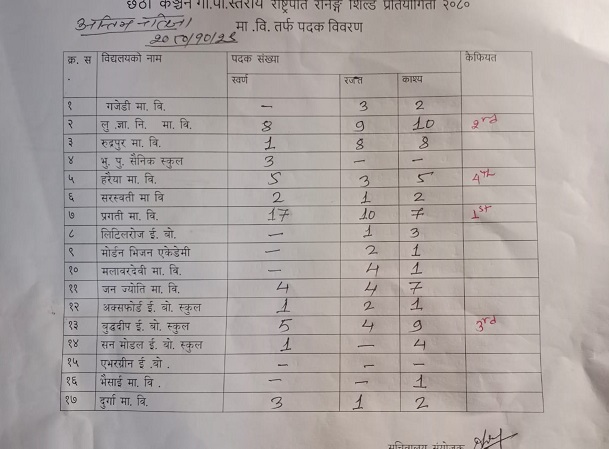 छैठौं कञ्चन गा.पा.स्तरीय राष्ट्रपति रनिङ्ग शिल्ड प्रतियोगिता २०८०
अन्तिम नतिजा
मा .वि. तर्फ पदक विवरण
२०८०/१०/२८
क्र. स . विद्यालयको नाम पदक संख्या केफियत
स्वर्ण रजत काश्य
१ गजेडी मा. वि. – 3 2
२ लु .ज्ञा. नि. मा. वि. 8 9 10 2nd
३ रुद्रपुर मा. वि. 1 8 8
४ भु . पु . सैनिक स्कुल 3 – –
५ हरैया मा. वि. 5 3 5 4th
६ सरस्वती मा. वि 2 1 2
७ प्रगती मा. वि. 17 10 7 1st
८ लिटिलरोज ई. बो. – 1 3
९ मोर्डन भिजन एकेडेमी – 2 1
१० मलावरदेवी मा. वि. – 4 1
११ जन ज्योति मा. वि. 4 4 7
१२ अक्सफोर्ड ई. बो. स्कुल 1 2 1
१३ बुद्धदीप ई. बो. स्कुल 5 4 9 3rd
१४ सन मोडल ई. बो. स्कुल 1 – 4
१५ एभरग्रीन ई .बो . – – –
१६ भैसाई मा. वि . – – 1
१७ दुर्गा मा. वि. 3 1 2
सचिवालय संयोजक